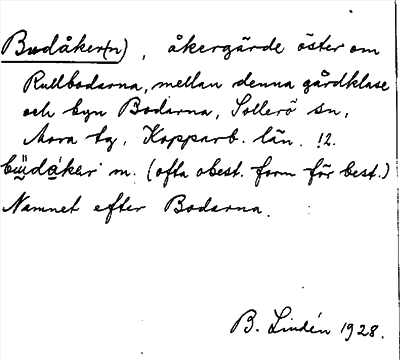 Budåker(n), åkergärde öster om
Rullbodarna, mellan denna gårdklase
och byn Bodarna, Sollerö sn,
Mora tg, Kopparb. län. 12.
m. (ofta obest. form för best.)
Namnet efter Bodarna.
B. Lindén 1928.